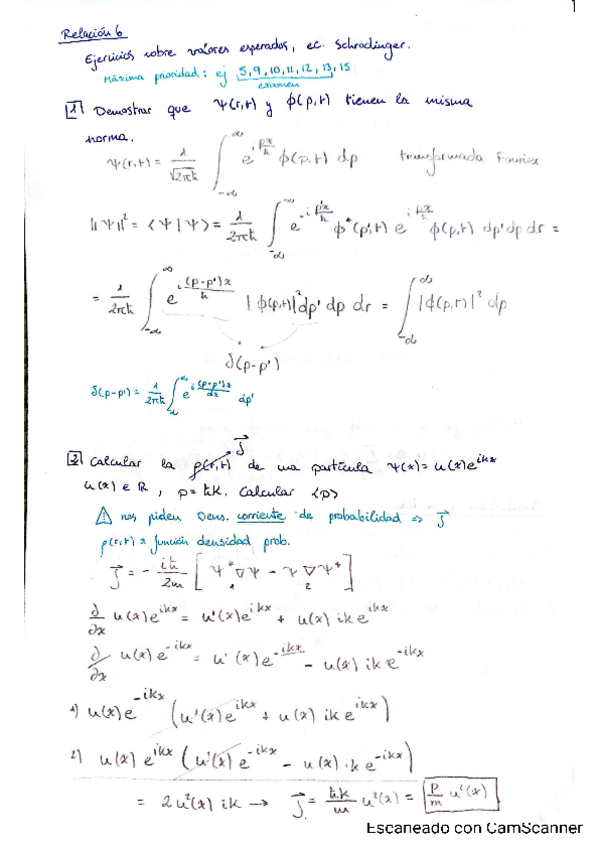 1
Relación 6
Ejercicios sobre valores esperados, ec. Schrodinger.
Máxima prioridad: ej 5, 9, 10, 11, 12, 13, 15
examen
1 Demostrar que Ψ(r,t) y ϕ(p,t) tienen la misma
norma.
Ψ(r,t) = 1/√(2πħ) ∫_{-∞}^{∞} e^{i px/ħ} ϕ(p,t) dp transformada Fourier
||Ψ||² = ⟨Ψ|Ψ⟩ = 1/(2πħ) ∫_{-∞}^{∞} e^{-i p'x/ħ} ϕ*(p',t) e^{i px/ħ} ϕ(p,t) dp' dp dr =
= 1/(2πħ) ∫_{-∞}^{∞} e^{i (p-p')x/ħ} |ϕ(p,t)|² dp' dp dr = ∫_{-∞}^{∞} |ϕ(p,t)|² dp
δ(p-p')
δ(p-p') = 1/(2πħ) ∫_{-∞}^{∞} e^{i (p-p')x/dx} dp'
J⃗
2 Calcular la ρ(r,t) de una partícula Ψ(x) = u(x)e^{ikx}
u(x) ∈ ℝ, p = ħk. Calcular ⟨p⟩
⚠ nos piden Dens. corriente de probabilidad ⇒ J⃗
ρ(r,t) = función densidad prob.
J⃗ = - iħ/2m [Ψ*∇Ψ - Ψ∇Ψ*]
1 2
∂/∂x u(x)e^{ikx} = u'(x)e^{ikx} + u(x) ik e^{ikx}
∂/∂x u(x)e^{-ikx} = u'(x)e^{-ikx} - u(x) ik e^{-ikx}
1) u(x)e^{-ikx} (u'(x)e^{ikx} + u(x) ik e^{ikx})
2) u(x) e^{ikx} (u'(x)e^{-ikx} - u(x) · k e^{-ikx})
= 2u²(x) ik → J⃗ = ħk/m u²(x) = p/m u²(x)
Escaneado con CamScanner